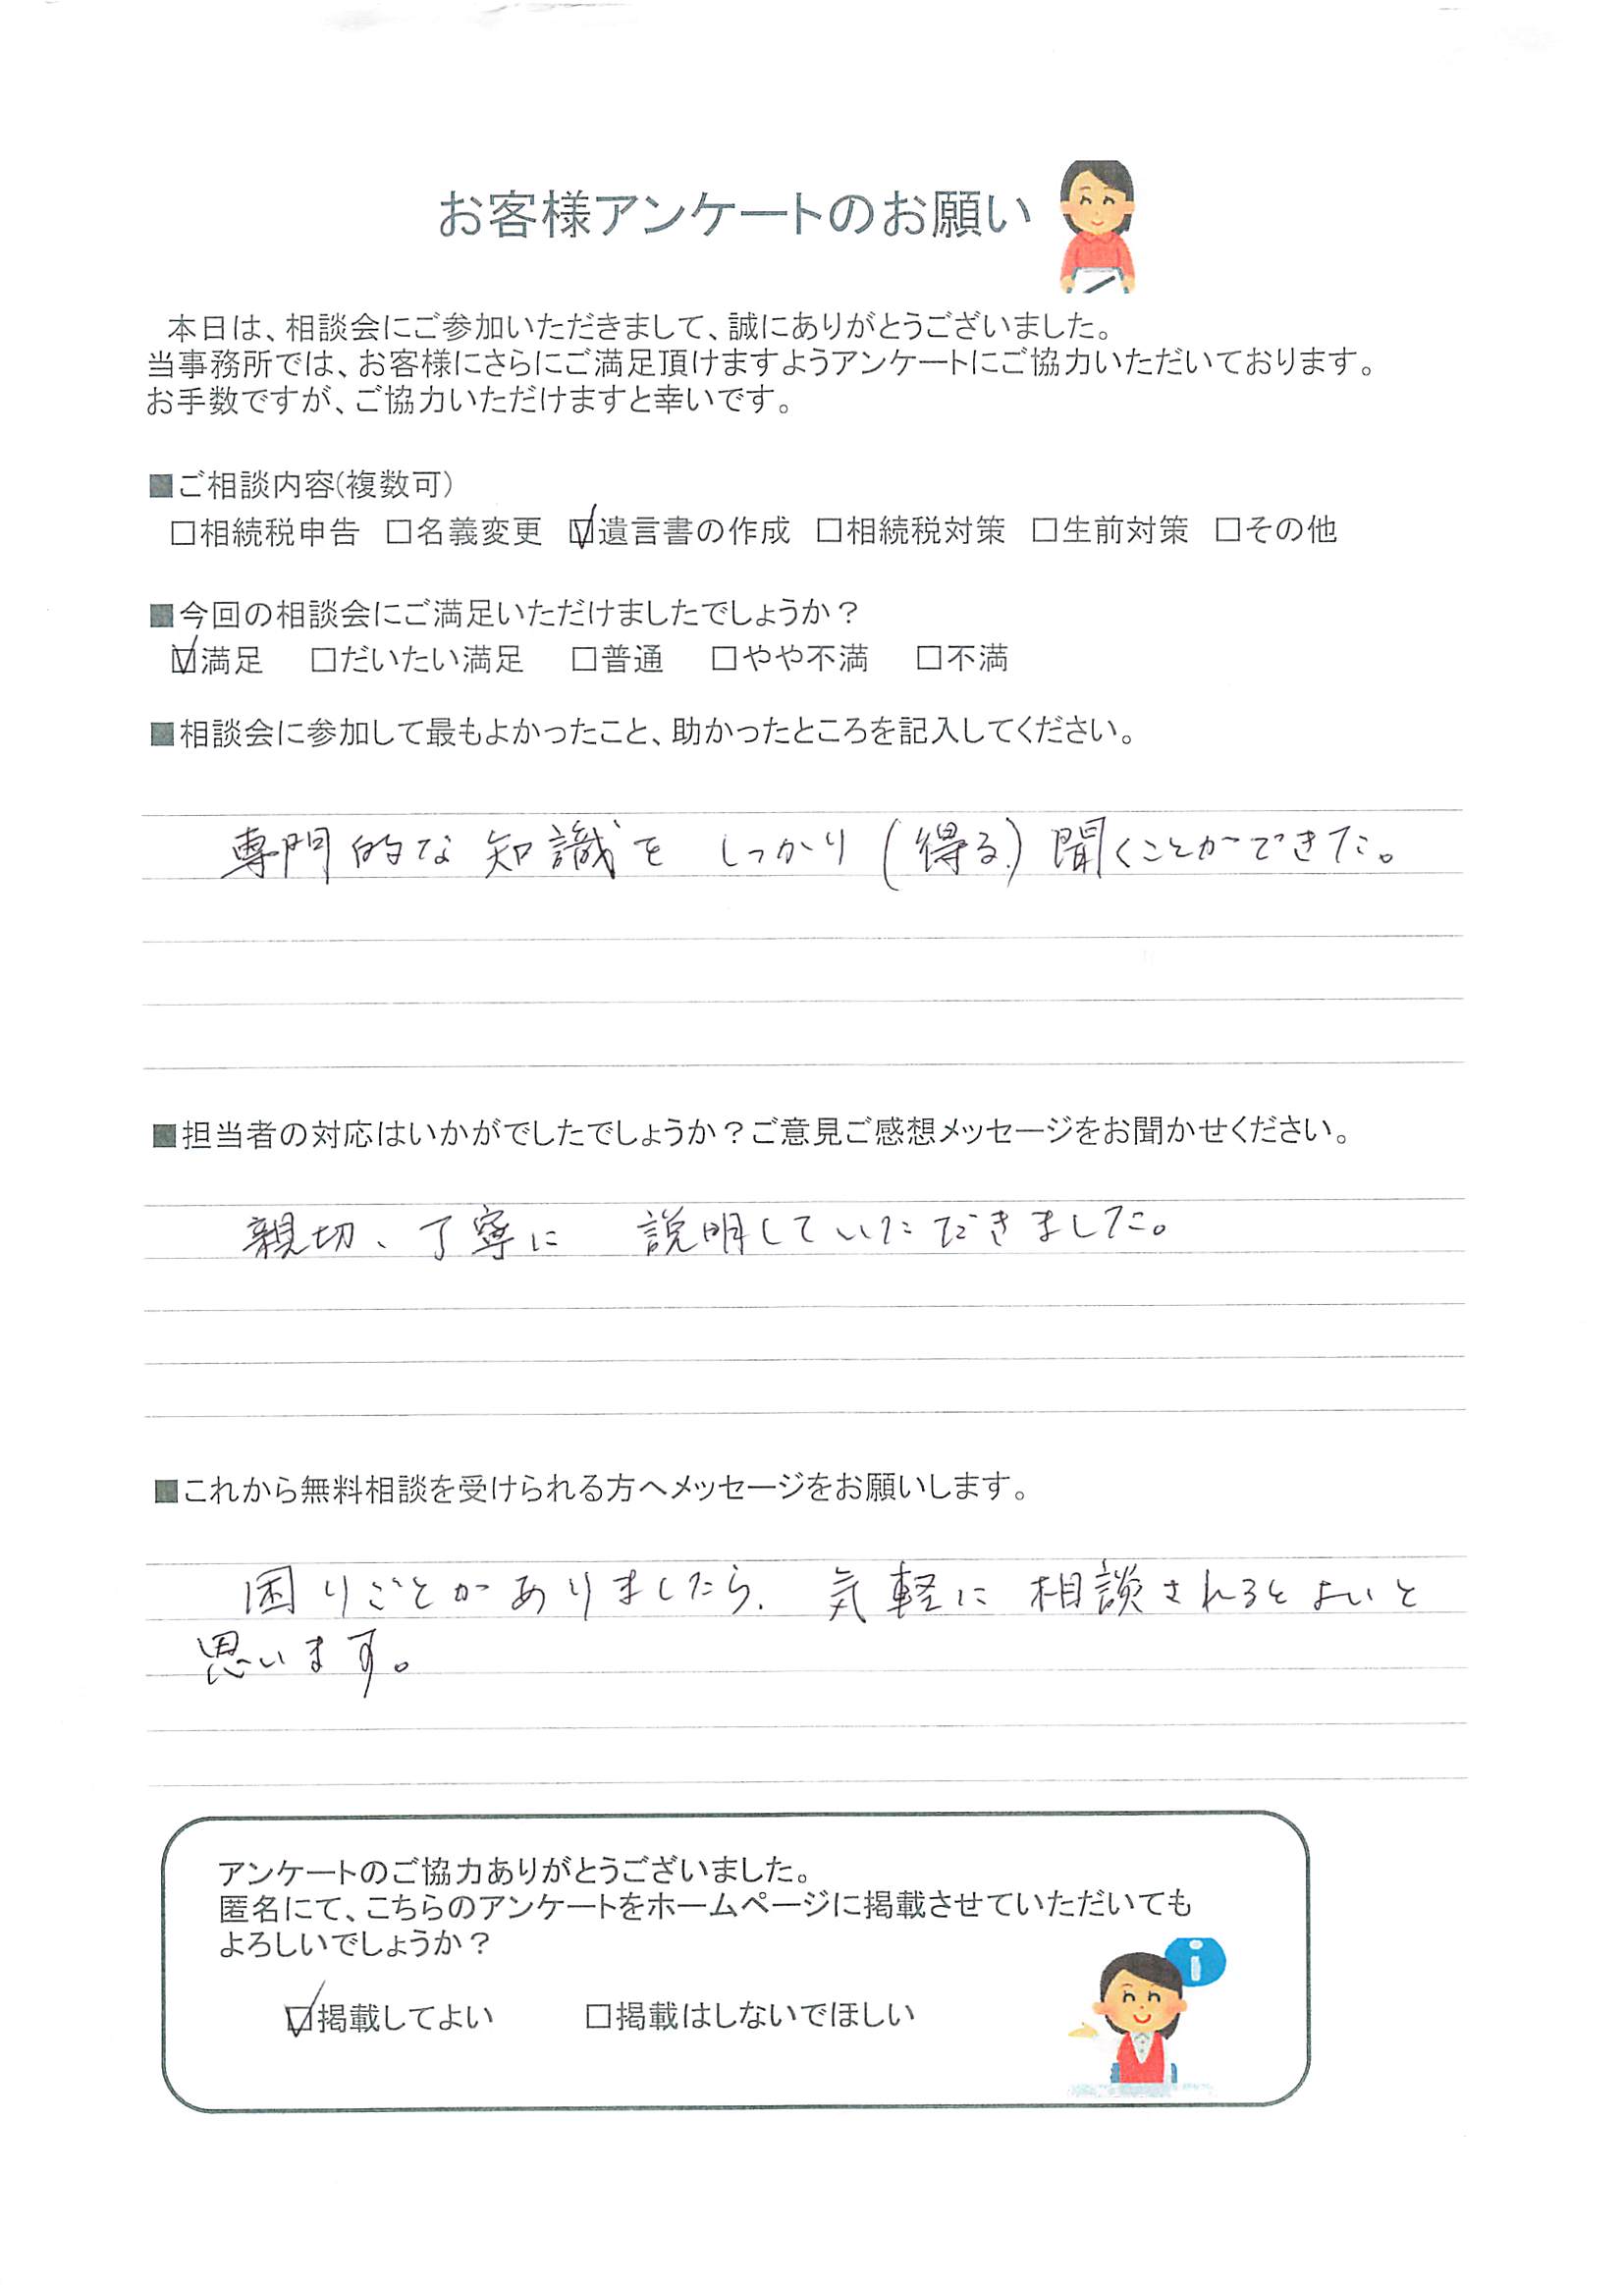 お客様アンケートのお願い
本日は、相談会にご参加いただきまして、誠にありがとうございました。
当事務所では、お客様にさらにご満足頂けますようアンケートにご協力いただいております。
お手数ですが、ご協力いただけますと幸いです。
■ご相談内容(複数可)
□相続税申告 □名義変更 ☑遺言書の作成 □相続税対策 □生前対策 □その他
■今回の相談会にご満足いただけましたでしょうか？
☑満足 □だいたい満足 □普通 □やや不満 □不満
■相談会に参加して最もよかったこと、助かったところを記入してください。
専門的な知識を しっかり (得る) 聞くことができた。
■担当者の対応はいかがでしたでしょうか？ご意見ご感想メッセージをお聞かせください。
親切、丁寧に 説明していただきました。
■これから無料相談を受けられる方へメッセージをお願いします。
困りごとがありましたら、気軽に 相談されるとよいと
思います。
アンケートのご協力ありがとうございました。
匿名にて、こちらのアンケートをホームページに掲載させていただいても
よろしいでしょうか？
i
☑掲載してよい □掲載はしないでほしい